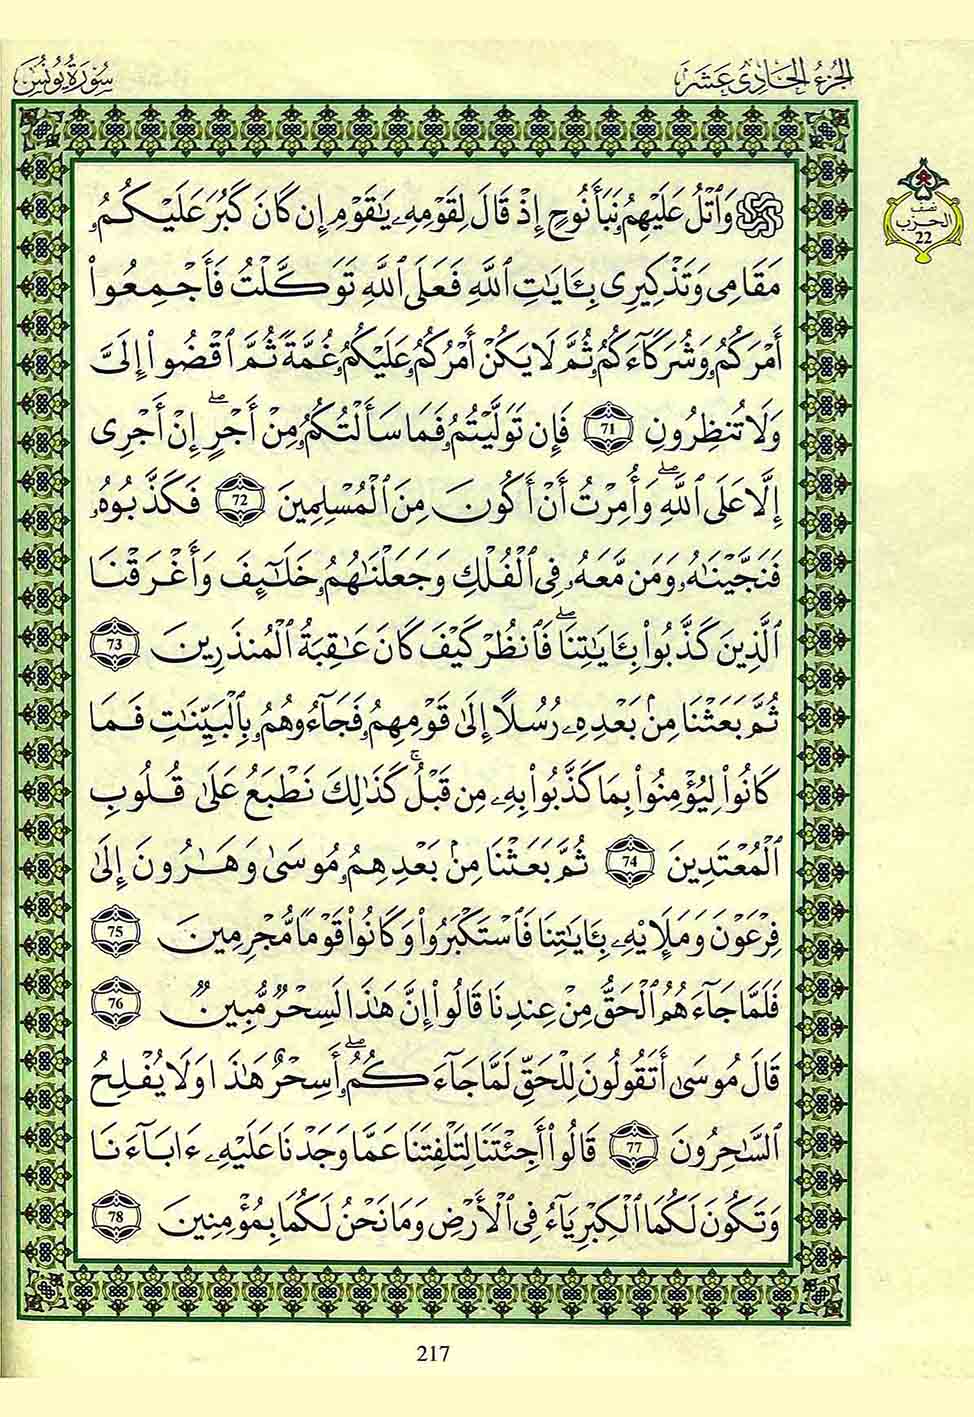 الجزء الحادي عشر
سورة يونس
نصف
الحزب
22
وَٱتْلُ عَلَيْهِمُۥ نَبَأَ نُوحٍ إِذْ قَالَ لِقَوْمِهِۦ يَٰقَوْمِ إِن كَانَ كَبُرَ عَلَيْكُمُۥ
مَقَامِى وَتَذْكِيرِى بِـَٔايَٰتِ ٱللَّهِ فَعَلَى ٱللَّهِ تَوَكَّلْتُ فَأَجْمِعُوٓا۟
أَمْرَكُمُۥ وَشُرَكَآءَكُمُۥ ثُمَّ لَا يَكُنْ أَمْرُكُمُۥ عَلَيْكُمُۥ غُمَّةً ثُمَّ ٱقْضُوٓا۟ إِلَىَّ
وَلَا تُنظِرُونِ 71 فَإِن تَوَلَّيْتُمُۥ فَمَا سَأَلْتُكُمُۥ مِنْ أَجْرٍ ۖ إِنْ أَجْرِى
إِلَّا عَلَى ٱللَّهِ ۖ وَأُمِرْتُ أَنْ أَكُونَ مِنَ ٱلْمُسْلِمِينَ 72 فَكَذَّبُوهُۥ
فَنَجَّيْنَٰهُۥ وَمَن مَّعَهُۥ فِى ٱلْفُلْكِ وَجَعَلْنَٰهُمُۥ خَلَٰٓئِفَ وَأَغْرَقْنَا
ٱلَّذِينَ كَذَّبُوا۟ بِـَٔايَٰتِنَا ۖ فَٱنظُرْ كَيْفَ كَانَ عَٰقِبَةُ ٱلْمُنذَرِينَ 73
ثُمَّ بَعَثْنَا مِنۢ بَعْدِهِۦ رُسُلًا إِلَىٰ قَوْمِهِمُۥ فَجَآءُوهُمُۥ بِٱلْبَيِّنَٰتِ فَمَا
كَانُوا۟ لِيُؤْمِنُوا۟ بِمَا كَذَّبُوا۟ بِهِۦ مِن قَبْلُ ۚ كَذَٰلِكَ نَطْبَعُ عَلَىٰ قُلُوبِ
ٱلْمُعْتَدِينَ 74 ثُمَّ بَعَثْنَا مِنۢ بَعْدِهِمُۥ مُوسَىٰ وَهَٰرُونَ إِلَىٰ
فِرْعَوْنَ وَمَلَإِي۟هِۦ بِـَٔايَٰتِنَا فَٱسْتَكْبَرُوا۟ وَكَانُوا۟ قَوْمًا مُّجْرِمِينَ 75
فَلَمَّا جَآءَهُمُ ٱلْحَقُّ مِنْ عِندِنَا قَالُوٓا۟ إِنَّ هَٰذَا لَسِحْرٌ مُّبِينٌ 76
قَالَ مُوسَىٰٓ أَتَقُولُونَ لِلْحَقِّ لَمَّا جَآءَكُمُۥ ۖ أَسِحْرٌ هَٰذَا وَلَا يُفْلِحُ
ٱلسَّٰحِرُونَ 77 قَالُوٓا۟ أَجِئْتَنَا لِتَلْفِتَنَا عَمَّا وَجَدْنَا عَلَيْهِۦ ءَابَآءَنَا
وَتَكُونَ لَكُمَا ٱلْكِبْرِيَآءُ فِى ٱلْأَرْضِ وَمَا نَحْنُ لَكُمَا بِمُؤْمِنِينَ 78
217